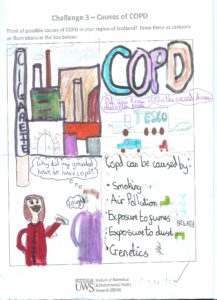 Challenge 3 – Causes of COPD
Think of possible causes of COPD in your region of Scotland? Draw these as cartoons
or illustrations in the box below:
COPD
TESCO
Why did my grandad
have to have copd?
Cough!
Copd can be caused by:
• Smoking
• Air Pollution
• Exposure to fumes
• Exposure to dust
• Genetics
UWS
Institute of Biomedical
& Environmental Health
Research (IBEHR)